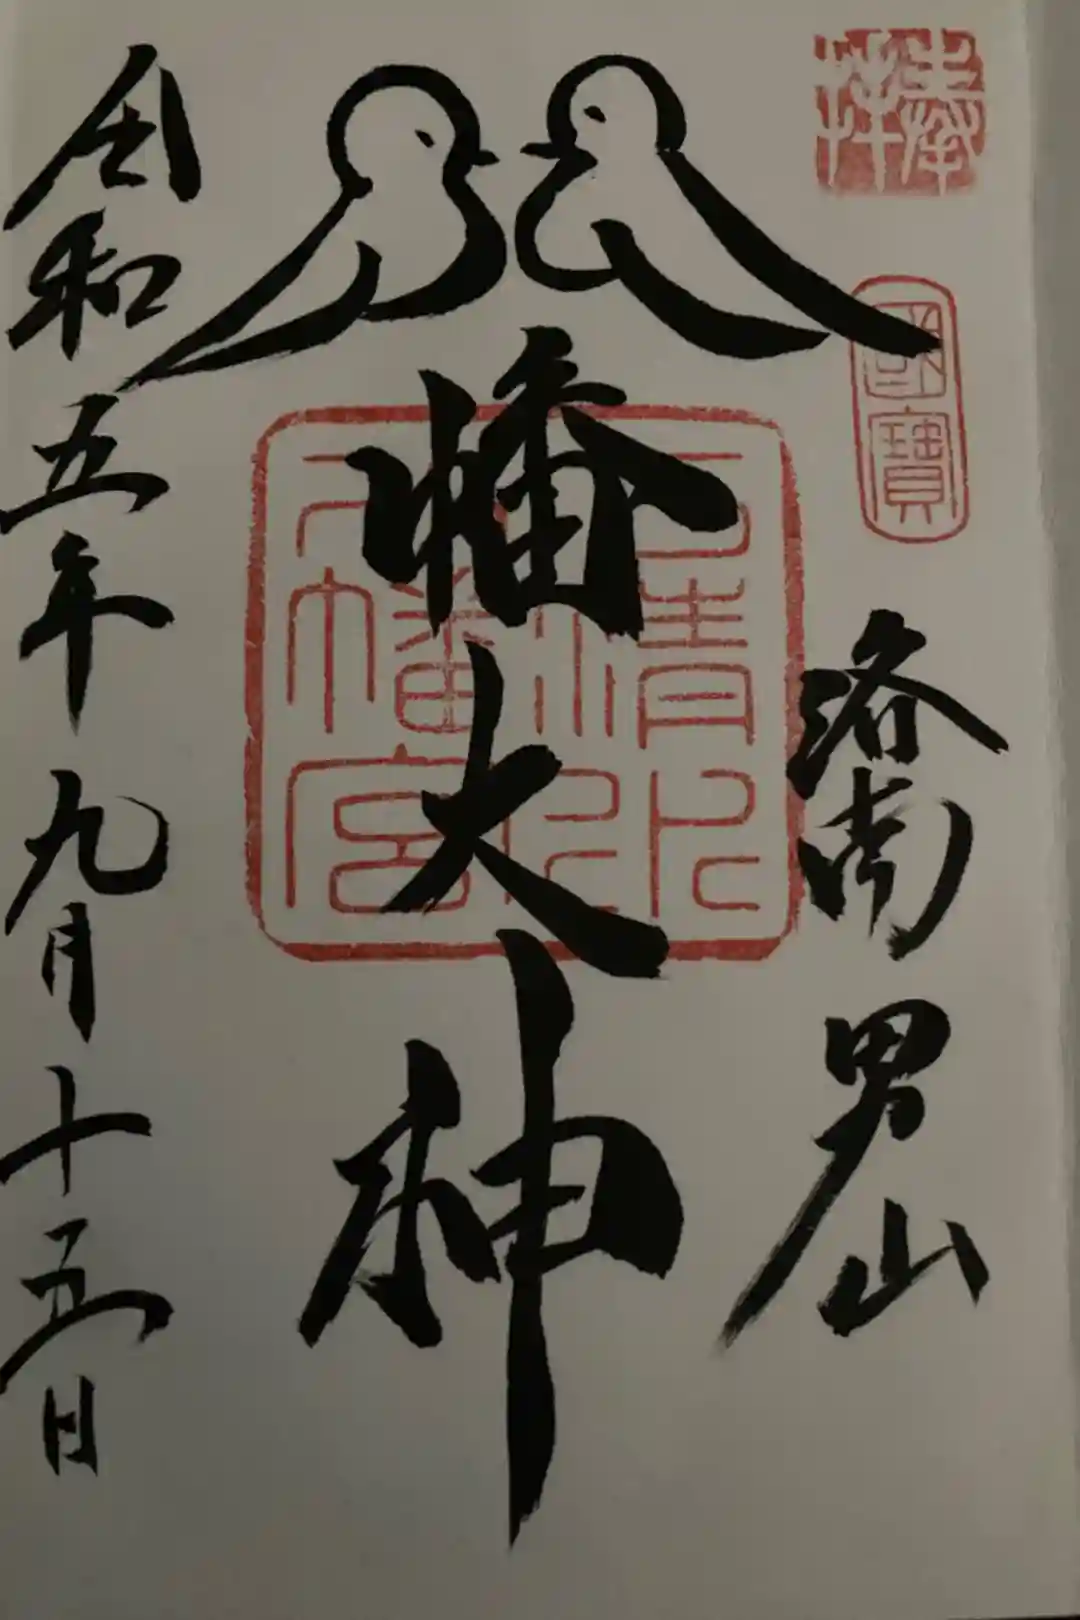 奉拝
國寶
洛南 男山
八幡大神
石清水八幡宮
令和五年九月十五日